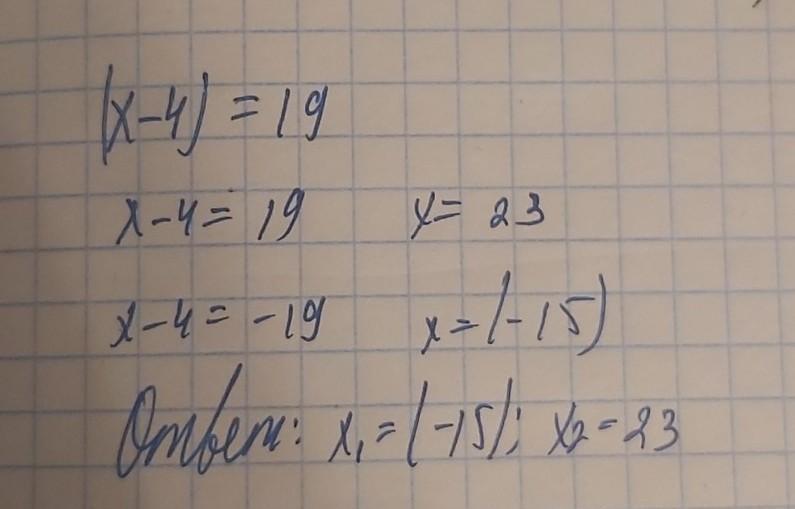 |x-4| = 19
x-4 = 19 x = 23
x-4 = -19 x = (-15)
Ответ: x₁ = (-15); x₂ = 23